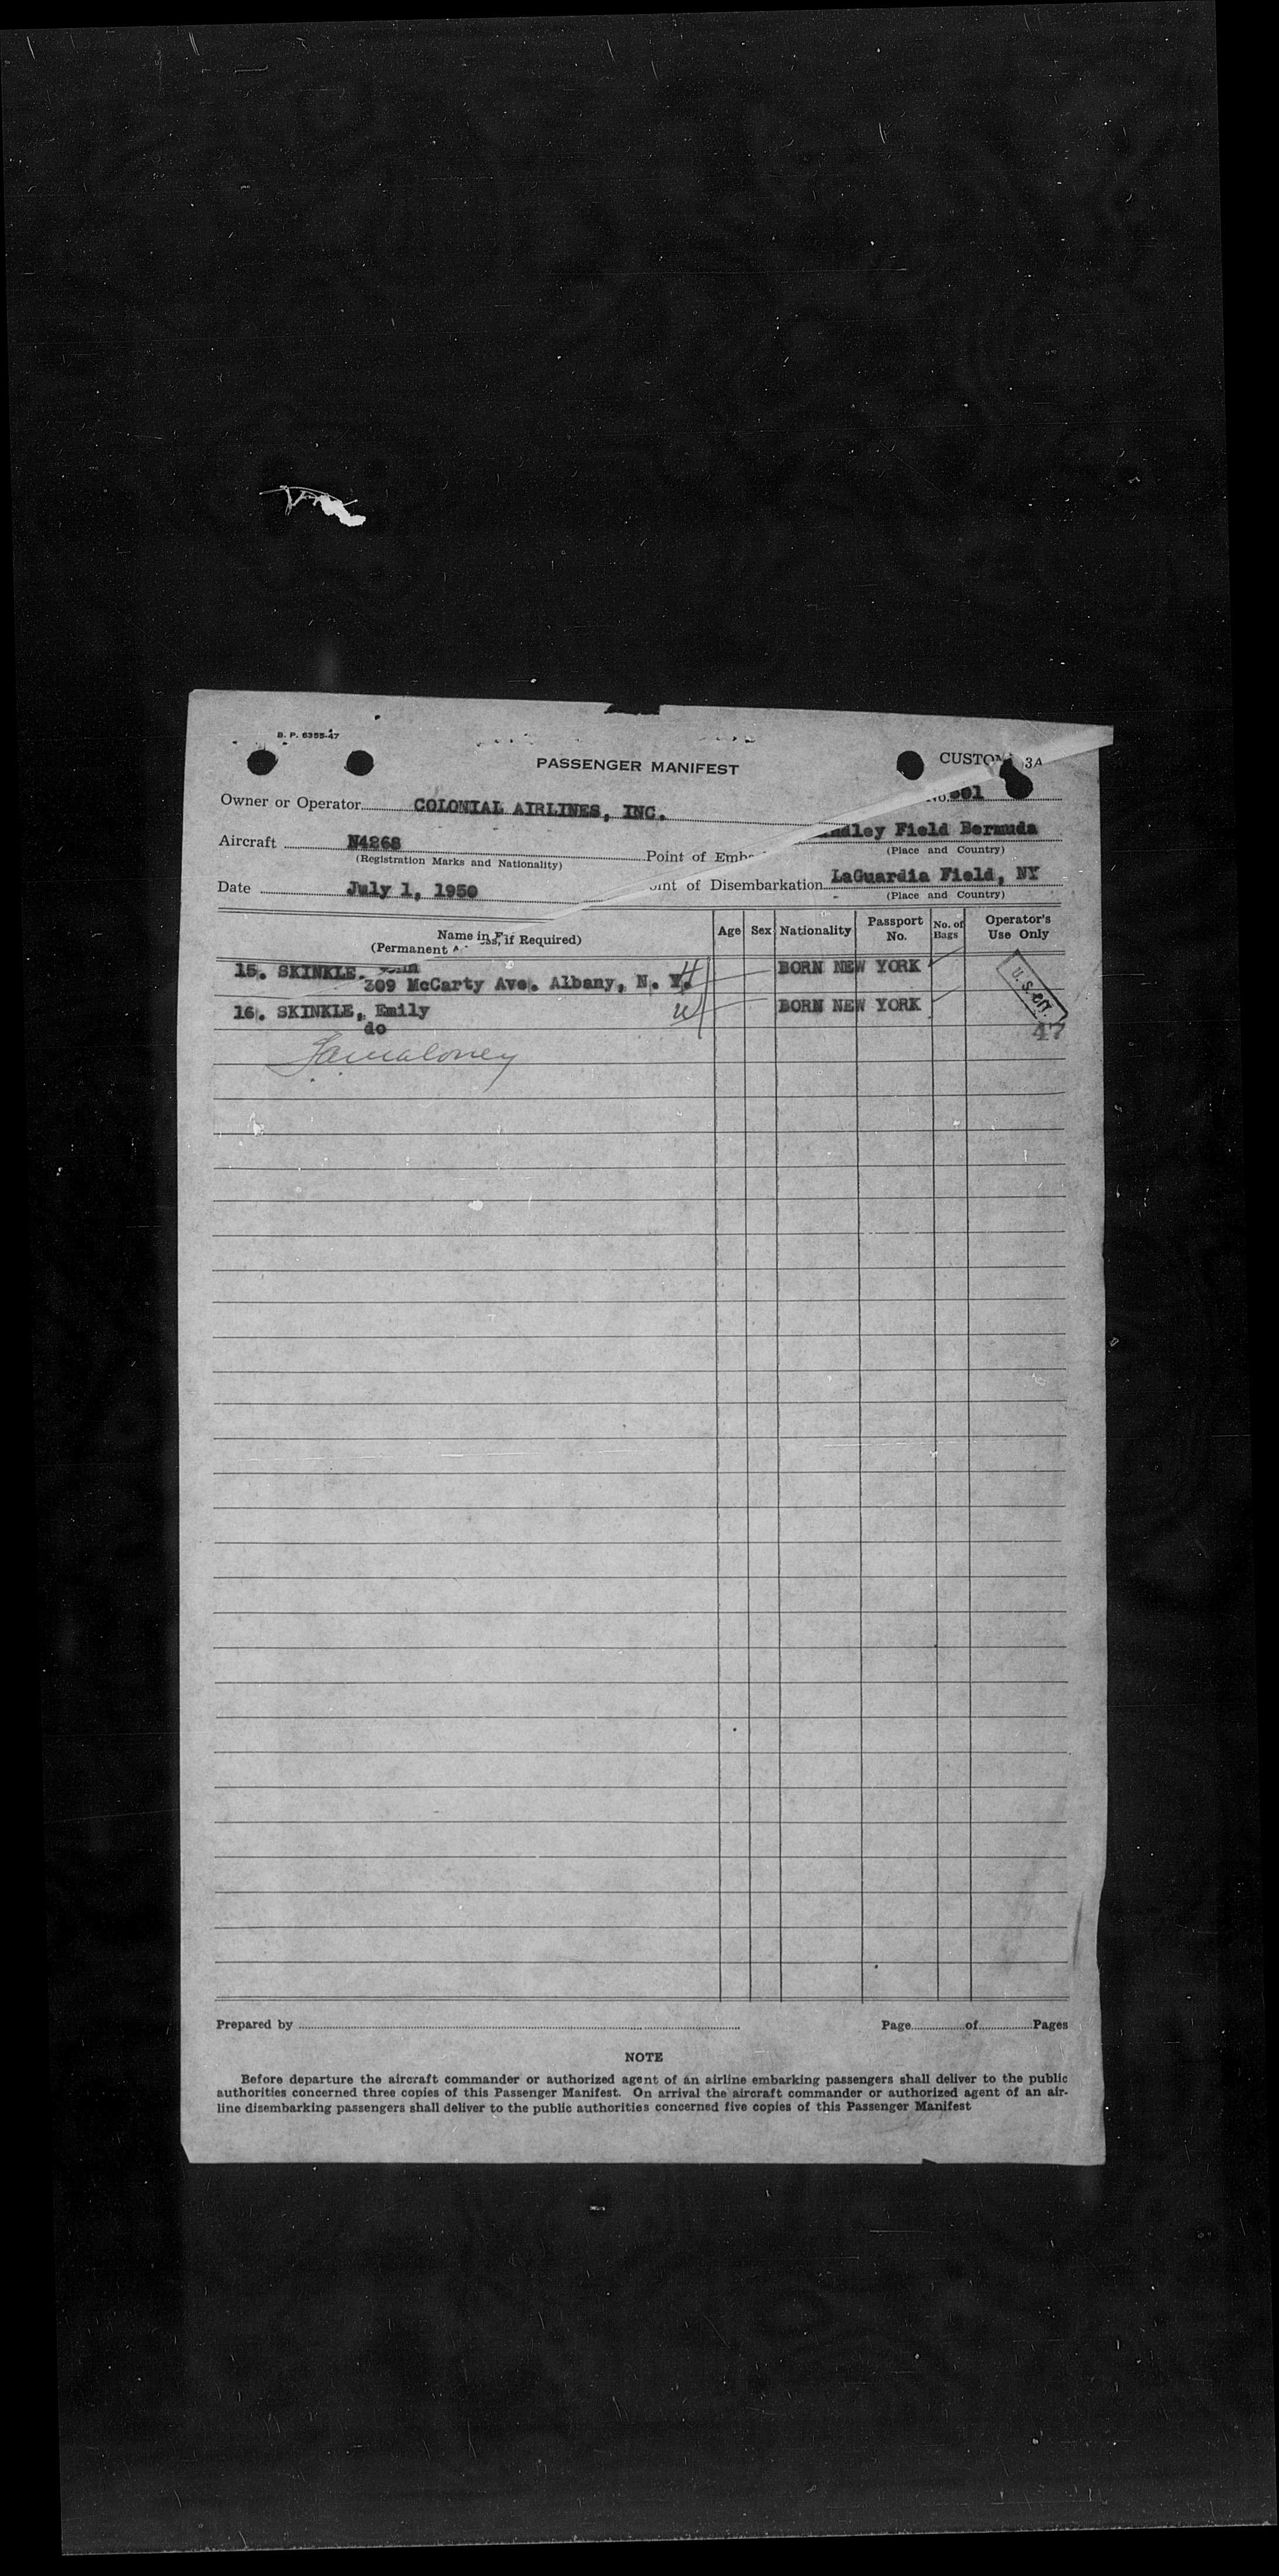 B. P. 6355-47
PASSENGER MANIFEST
3A
Owner or Operator COLONIAL AIRLINES, INC.
Aircraft N4268
Field Bermuda
(Registration Marks and Nationality)
Point of
(Place and Country)
Date July 1, 1950
of Disembarkation LaGuardia Field, NY
(Place and Country)
Name in
(Permanent if Required)
Age Sex Nationality Passport No. No. of Bags Operator's Use Only
15. SKINKLE, BORN NEW YORK
309 McCarty Ave. Albany, N. Y. H
U. S. CIT.
16. SKINKLE, Emily W BORN NEW YORK
do
47
Prepared by Page of Pages
NOTE
Before departure the aircraft commander or authorized agent of an airline embarking passengers shall deliver to the public
authorities concerned three copies of this Passenger Manifest. On arrival the aircraft commander or authorized agent of an air-
line disembarking passengers shall deliver to the public authorities concerned five copies of this Passenger Manifest